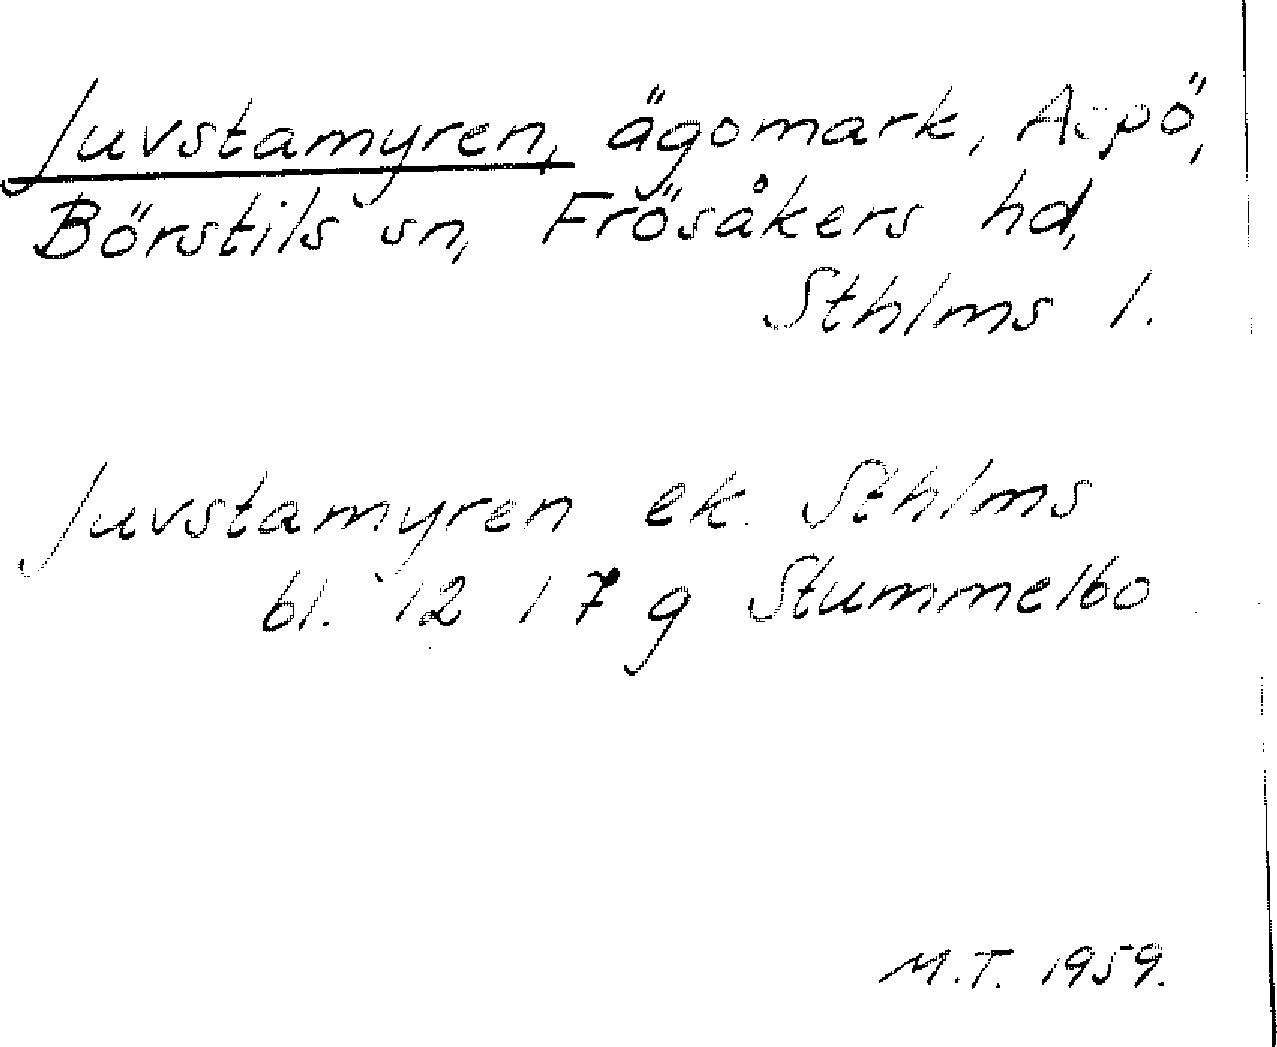 Juvstamyren, ägomark, Aspö,
Börstils sn, Frösåkers hd,
Sthlms l.
Juvstamyren ek. Sthlms
bl. 12 I 7 g Stummelbo
M.T. 1959.